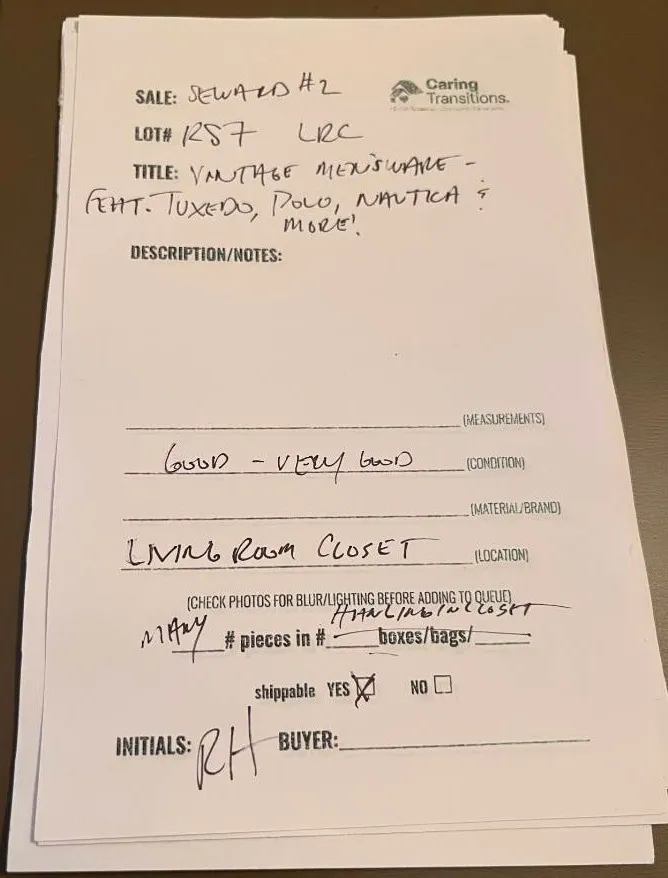 SALE: SEWARD #2
Caring
Transitions.
LOT# RS7 LRC
TITLE: VANTAGE MEN'SWARE -
FEAT. TUXEDO, POLO, NAUTICA &
MORE!
DESCRIPTION/NOTES:
(MEASUREMENTS)
GOOD - VERY GOOD (CONDITION)
(MATERIAL/BRAND)
LIVING ROOM CLOSET (LOCATION)
(CHECK PHOTOS FOR BLUR/LIGHTING BEFORE ADDING TO QUEUE)
HANGING IN CLOSET
MANY # pieces in # boxes/bags/
shippable YES NO
INITIALS: RH BUYER: